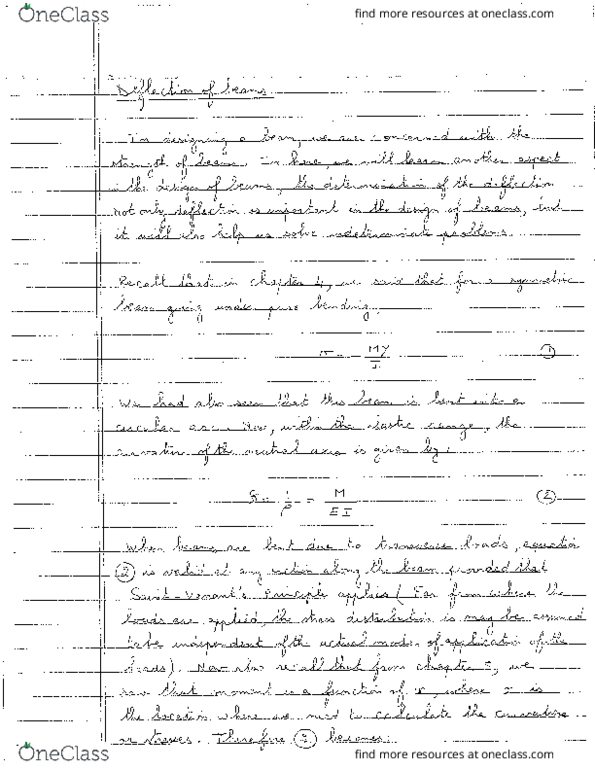 OneClass
find more resources at oneclass.com
Deflection of beams
In designing a beam, we are concerned with the
strength of beam. In here we will learn another aspect
in the design of beams, the determination of the deflection
not only deflection is important in the design of beams, but
it will also help us solve indeterminate problems.
Recall that in chapter 4, we said that for a symmetric
beam going under pure bending,
σ = MY/I (1)
We had also seen that this beam is bent into a
circular arc. Now, within the elastic range, the
curvature of the neutral axis is given by:
1/ρ = M/EI (2)
When beams are bent due to transverse loads, equation
(2) is valid at any section along the beam provided that
Saint-Venant's Principle applies (Far from where the
loads are applied, the stress distribution is may be assumed
to be independent of the actual mode of application of the
loads). Now also recall that from chapter 5, we
saw that moment is a function of x, where x is
the location where we need to calculate the curvature
or stresses. Therefore (2) becomes:
OneClass
find more resources at oneclass.com